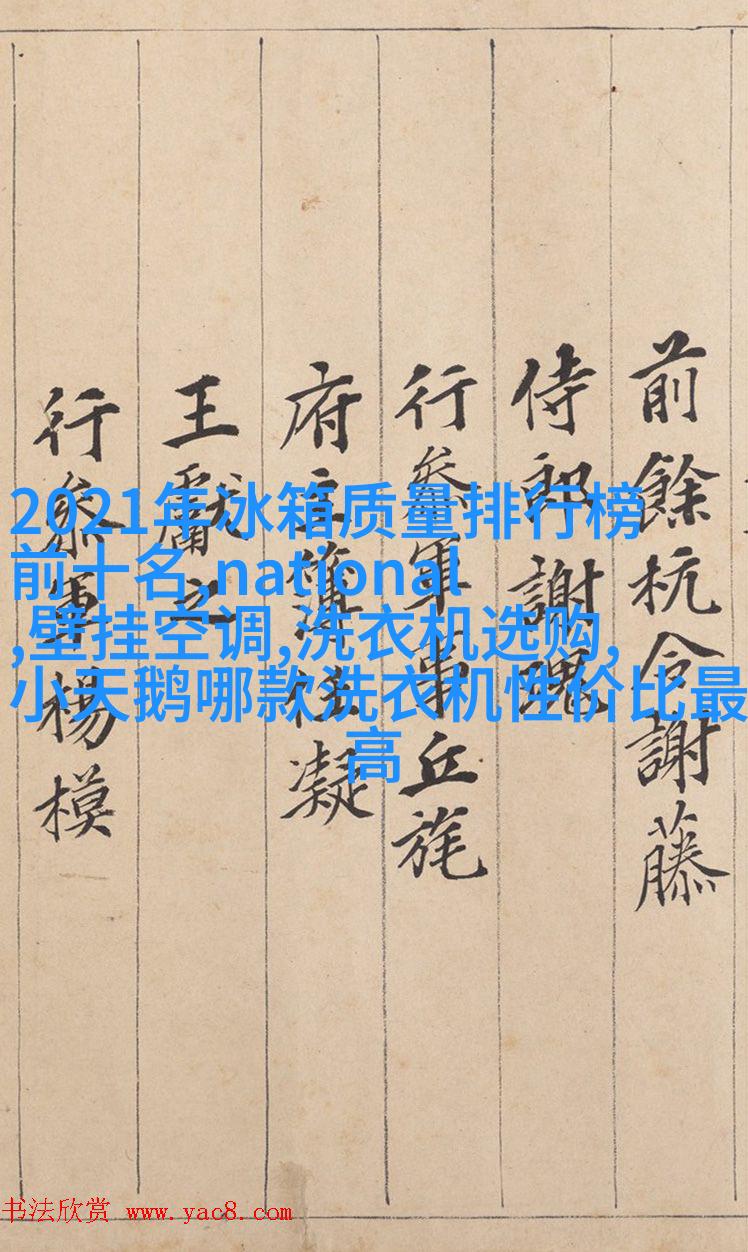 前餘杭令謝藤
侍郎謝瑰
行叅軍事丘旄
府主簿任凝
王獻之
行叅軍楊模
2021年冰箱质量排行榜
前十名,national
,壁挂空调,洗衣机选购,
小天鹅哪款洗衣机性价比最
高
书法欣赏 www.yac8.com